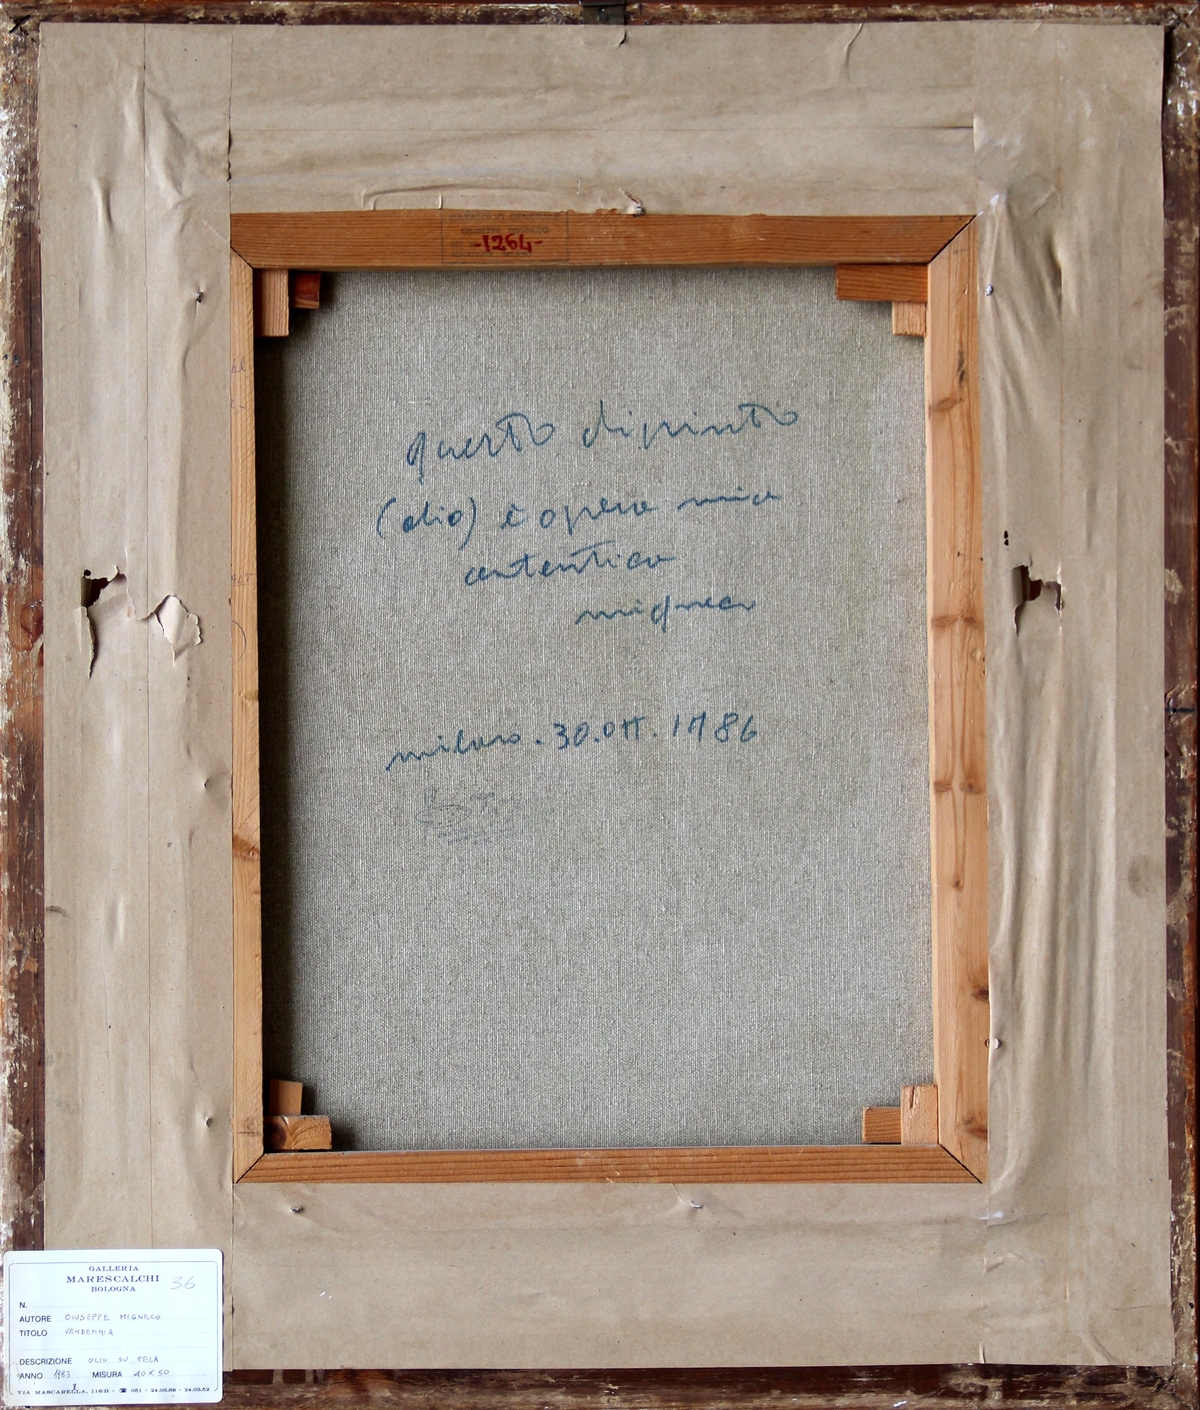 -1264-
questo dipinto
(olio) è opera mia
autentica
migneco
milano. 30. OTT. 1986
GALLERIA
MARESCALCHI 36
BOLOGNA
N.
AUTORE GIUSEPPE MIGNECO
TITOLO VENDEMMIA
DESCRIZIONE OLIO SU TELA
ANNO 1983 MISURA 40 X 50
VIA MASCARELLA, 116/B - ☎ 051 - 24.03.68 - 24.03.52